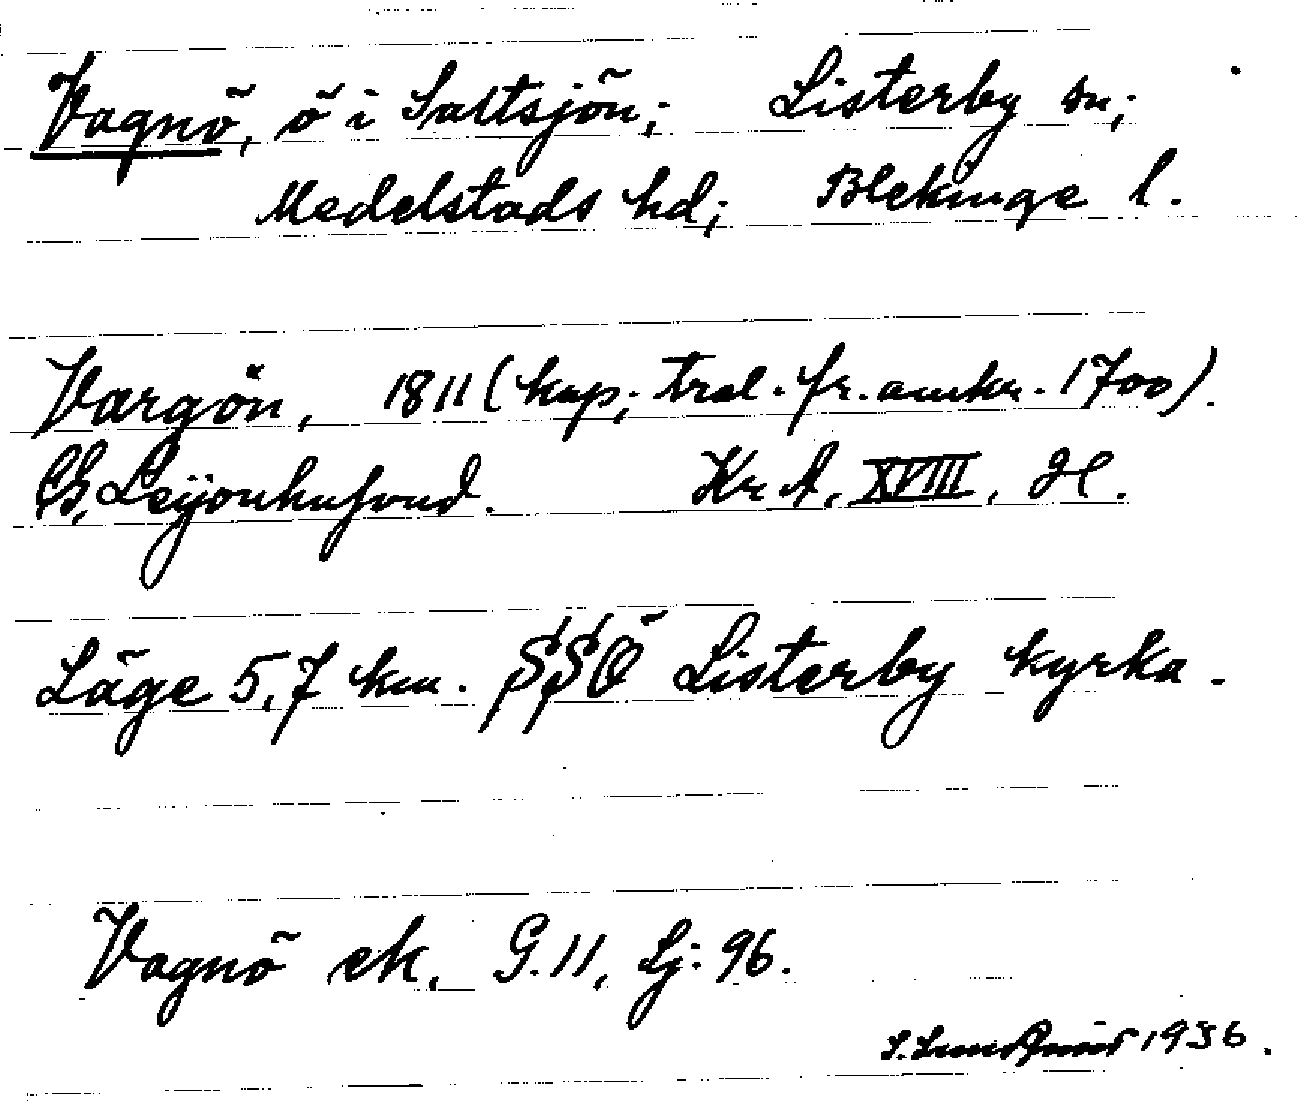 Vagnö, ö i Saltsjön; Listerby sn;
Medelstads hd; Blekinge l.
Vargön, 1811 (kop; tral. fr. amkr. 1700).
Ch. Leijonhufvud. Kr A, XVIII, H.
Läge 5,7 km. SSÖ Listerby kyrka.
Vagnö ek. G. 11, Lj: 96.
1936.